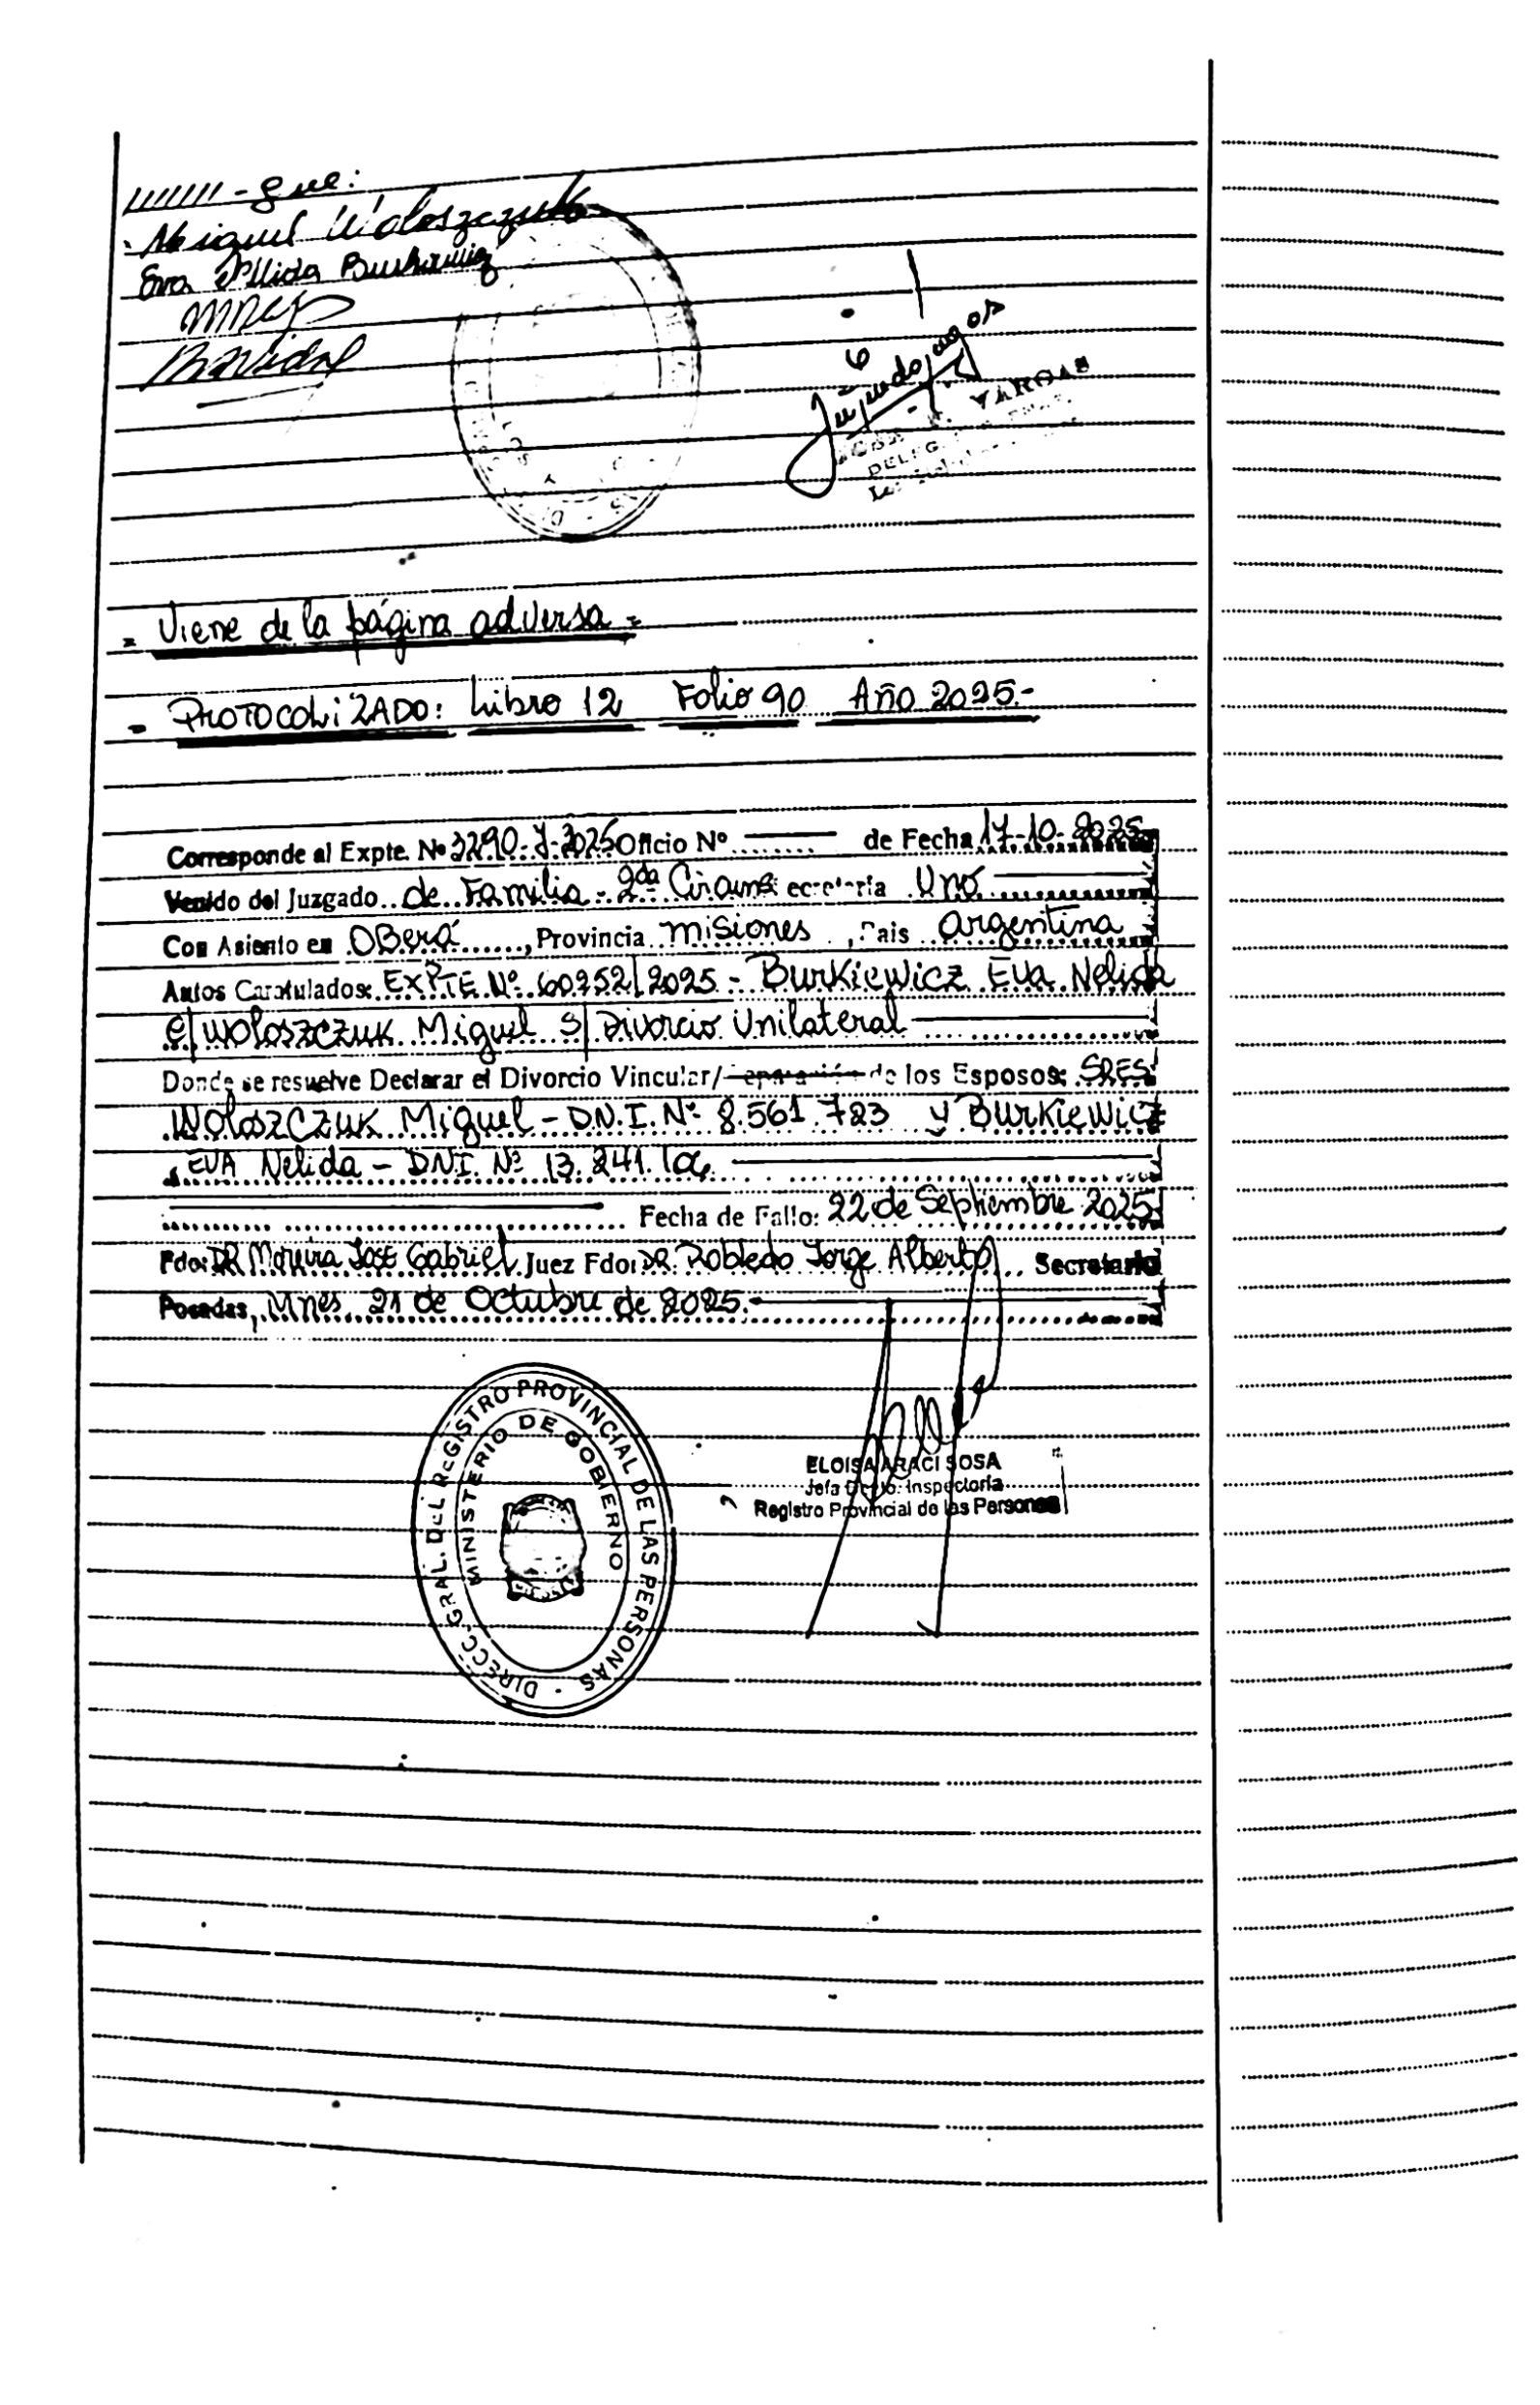 - que:
Miguel Woloszczuk
Eva Nélida Burkiewicz
VARGAS
= Viene de la página adversa =
- PROTOCOLIZADO: Libro 12 Folio 90 Año 2025.-
Corresponde al Expte. Nº 3290-J-2025 Oficio Nº ——— de Fecha 17-10-2025
Venido del Juzgado de Familia - 2da Circuns ecretaría Uno
Con Asiento en OBerá, Provincia Misiones, Pais Argentina
Autos Caratulados: EXPTE Nº 60252/2025 - Burkiewicz Eva Nelida
C/ Woloszczuk Miguel S/ Divorcio Unilateral
Donde se resuelve Declarar el Divorcio Vincular/ de los Esposos: SRES.
WOLOSZCZUK Miguel - D.N.I. Nº 8.561.723 y Burkiewicz
EVA Nelida - DNI. Nº 13.241.
Fecha de Fallo: 22 de Septiembre 2025
Fdo: DR Moreira José Gabriel Juez Fdo: DR. Robledo Jorge Alberto Secretario
Posadas, Mnes, 21 de Octubre de 2025.-
DIRECC. GRAL. DEL REGISTRO PROVINCIAL DE LAS PERSONAS -
MINISTERIO DE GOBIERNO
ELOISA ARACI SOSA
Jefa Dpto. Inspectoría
Registro Provincial de las Personas